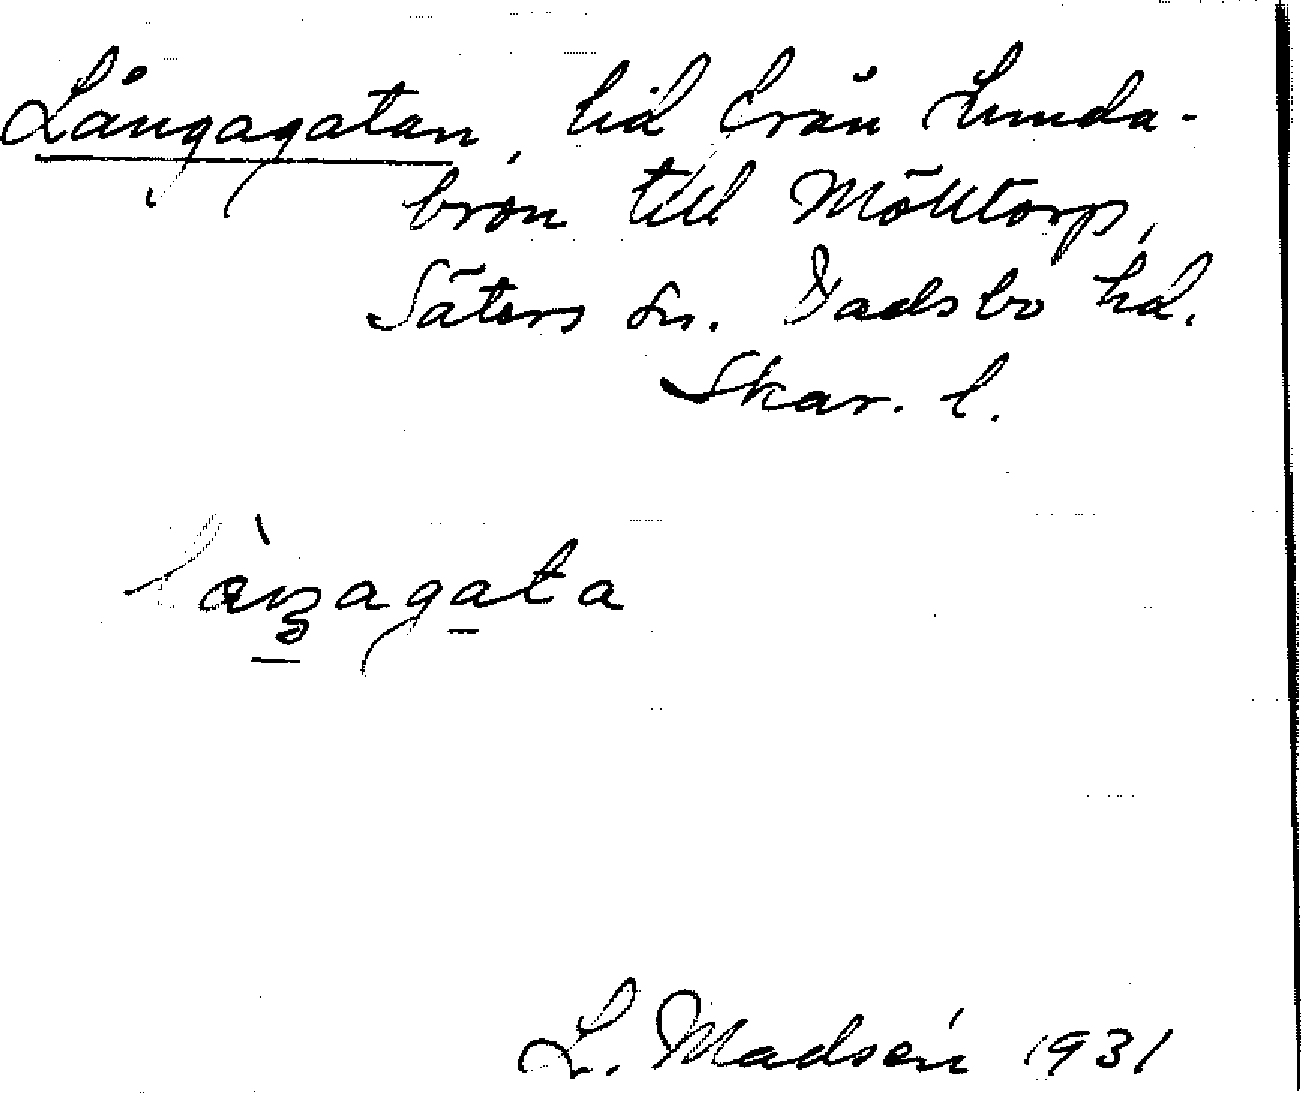 Långagatan, lid från Lunda-
bron till Mölltorp,
Säters sn. Vadsbo hd.
Skar. l.
L. Madsén 1931